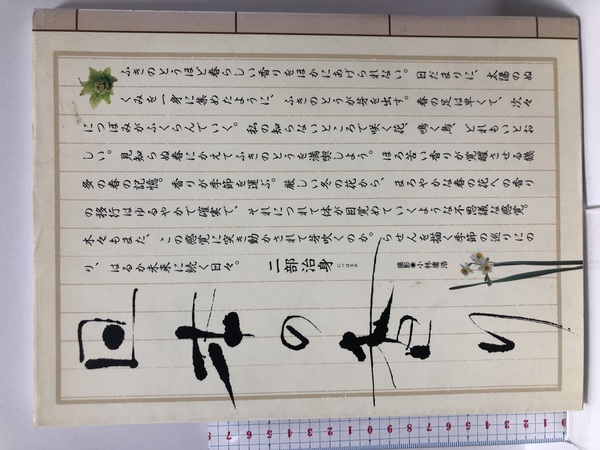 ふきのとうほど春らしい香りをほかにあげられない。日だまりに、太陽のぬ
くみを一身に集めたように、ふきのとうが芽を出す。春の足は早くて、次々
につぼみがふくらんでいく。私の知らないところで咲く花、鳴く鳥、どれもいとお
しい。見知らぬ春にかえてふきのとうを満喫しよう。ほろ苦い香りが覚醒させる幾
多の春の記憶。香りが季節を運ぶ。厳しい冬の花から、まろやかな春の花への香り
の移行はゆるやかで確実で、それにつれて体が目覚めていくような不思議な感覚。
木々もまた、この感覚に突き動かされて芽吹くのか。らせんを描く季節の巡りにの
り、はるか未来に続く日々。
二部治身 にべはるみ
撮影❋小林庸浩
四季の香り